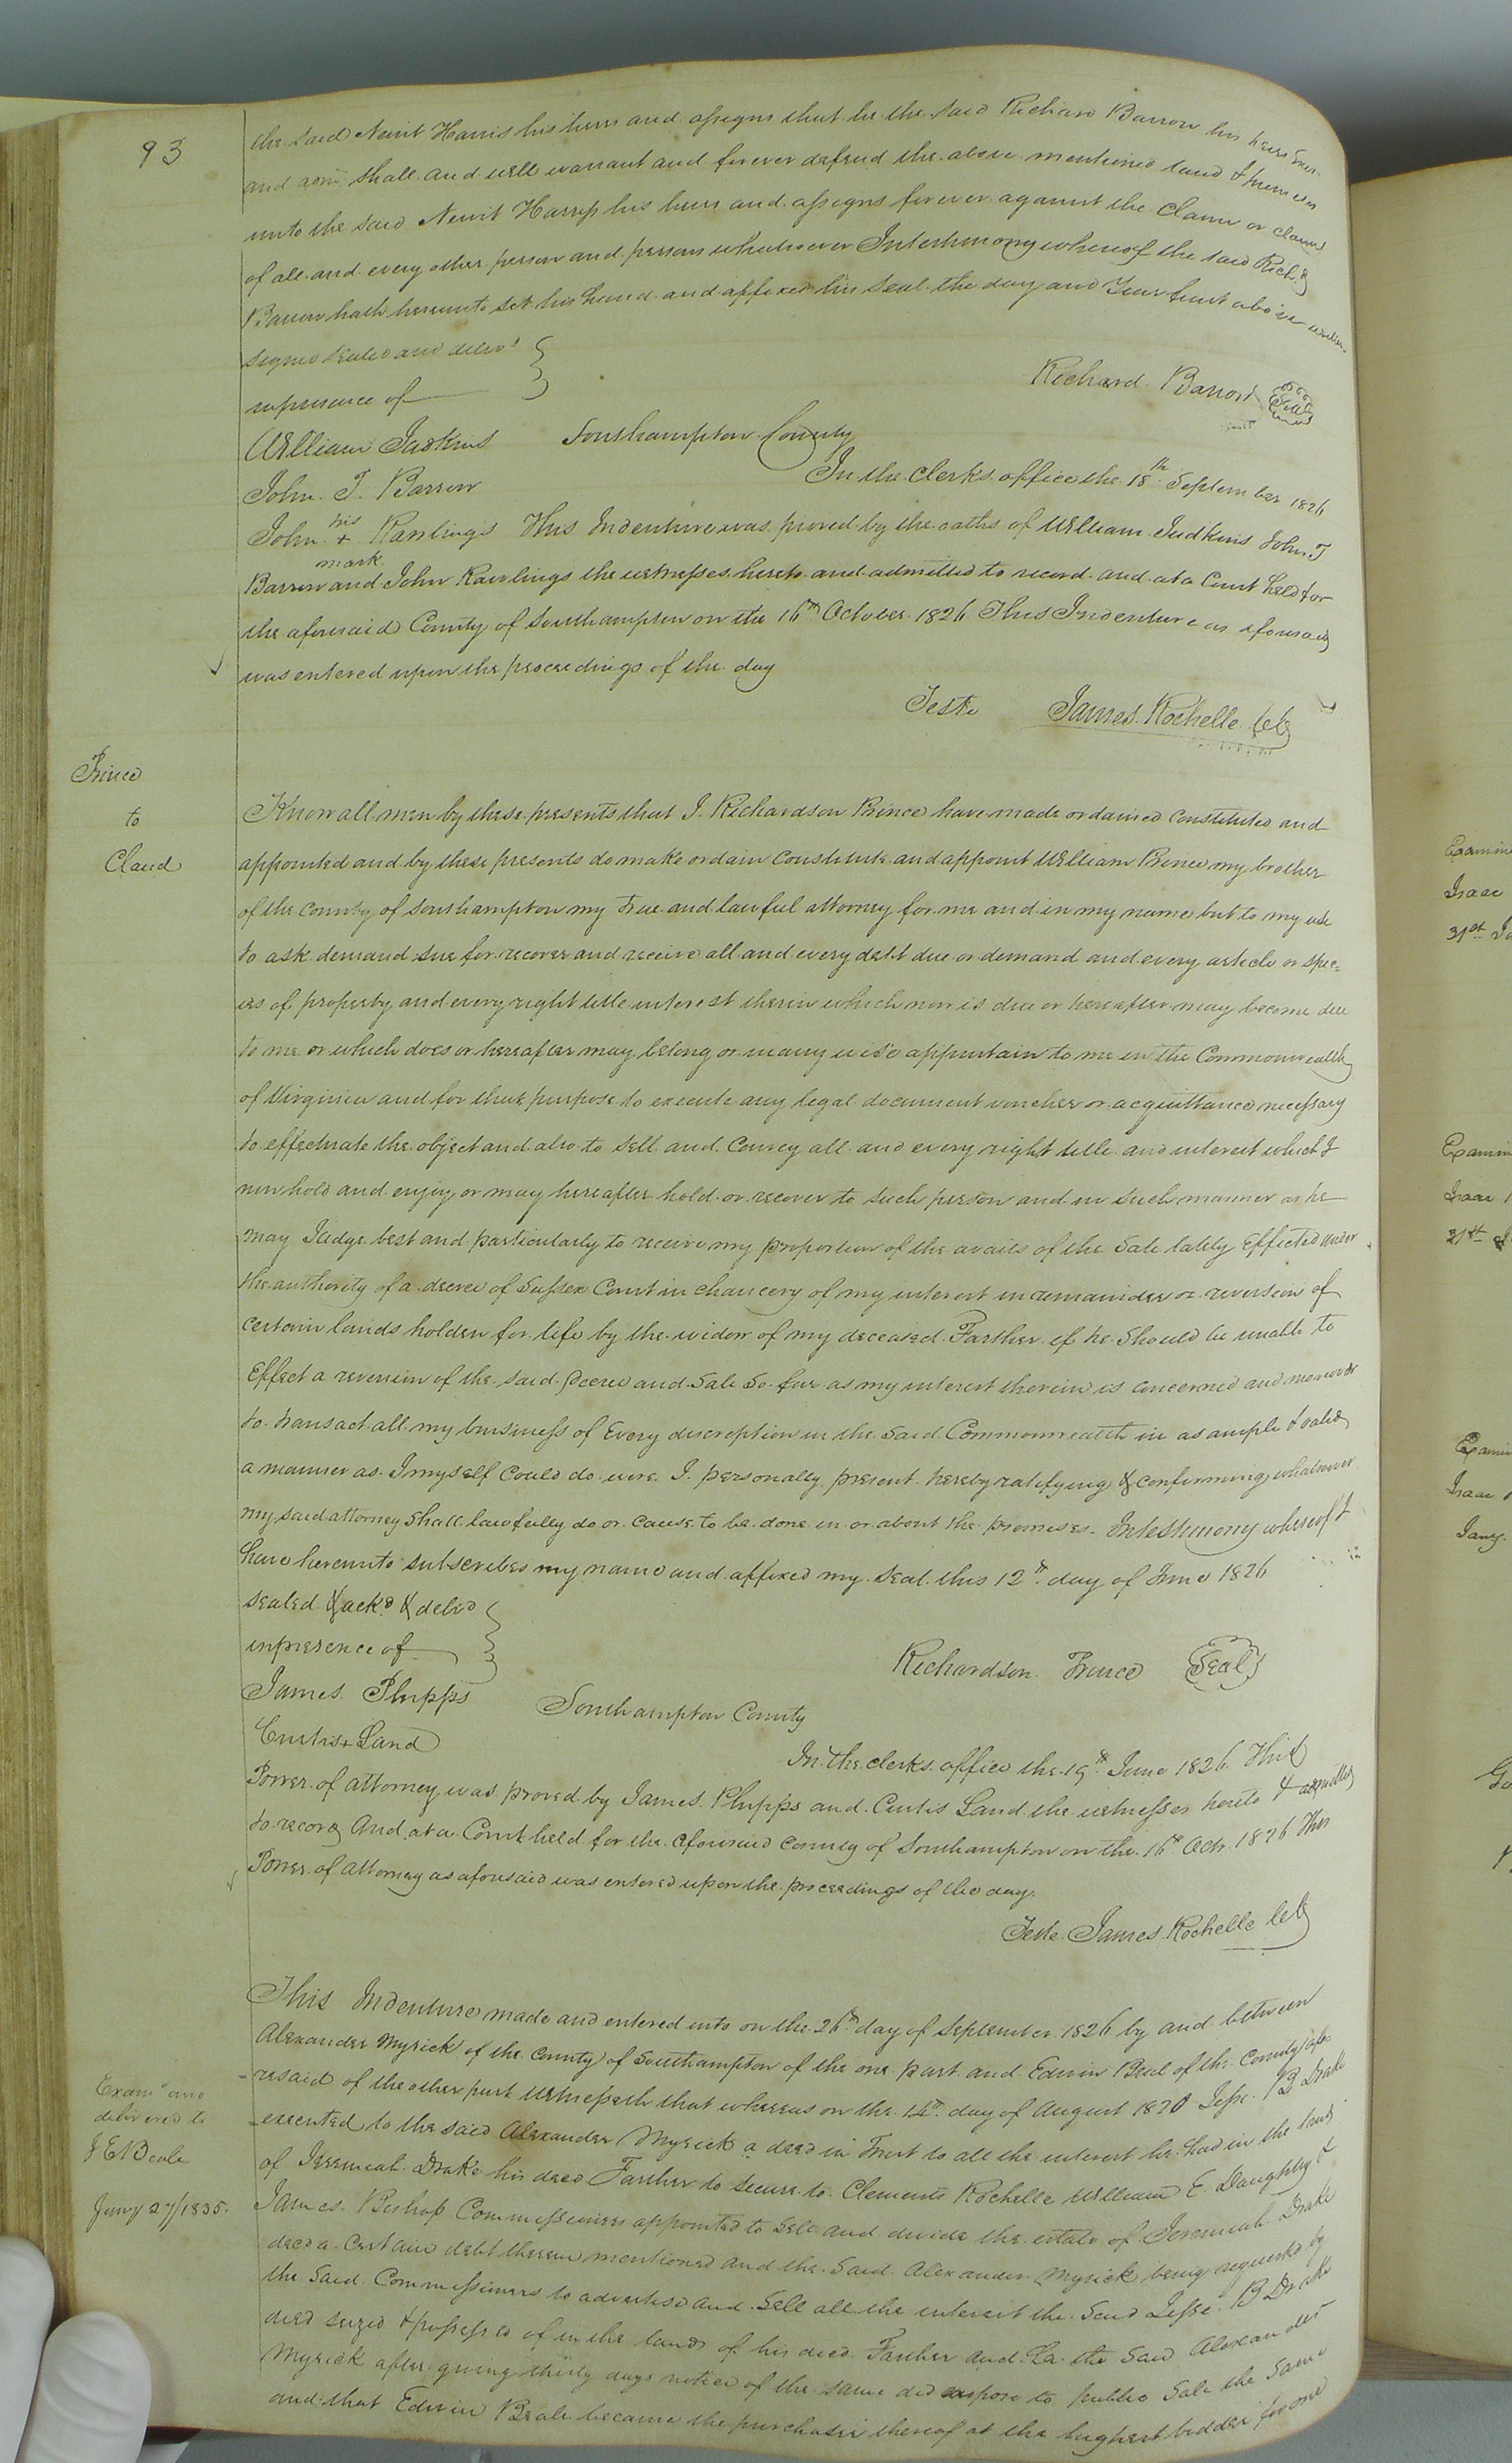 93
the said Newit Harris his heirs and assigns that he the said Richard Barrow his heirs Exor.
and admr shall and will warrant and forever defend the above mentioned land & premises
unto the said Newit Harris his heirs and assigns forever against the claim or claims
of all and every other person and persons whatsoever Intestimony whereof the said Richd
Barrow hath hereunto set his hand and affixed his seal the day and Year first above written
Signed Sealed and delivd
in presence of
Richard Barrow Seal
William Judkins Southampton County
John T Barrow In the clerks office the 18th September 1826
John his + mark Rawlings This Indenture was proved by the oaths of William Judkins John T
Barrow and John Rawlings the witnesses hereto and admitted to record and at a Court held for
the aforesaid County of Southampton on the 16th October 1826 This Indenture as aforesaid
was entered upon the proceedings of the day
Teste James Rochelle clk
Prince
to
Claud
Know all men by these presents that I Richardson Prince have made ordained Constituted and
appointed and by these presents do make ordain Constitute and appoint William Prince my brother
of the County of Southampton my True and lawful attorney for me and in my name but to my use
to ask demand sue for recover and receive all and every debt due or demand and every article or spec=
ies of property and every right title interest therein which now is due or hereafter may become due
to me or which does or hereafter may belong or in any wise appurtain to me in the Commonwealth
of Virginia and for that purpose to execute any legal document voucher or acquittance necessary
to effectuate the object and also to sell and Convey all and every right title and interest which I
now hold and enjoy or may hereafter hold or recover to such person and in such manner as he
may Judge best and particularly to receive my proportion of the avails of the Sale lately Effected under
the authority of a decree of Sussex Court in chancery of my interest in remainder or reversion of
certain lands holden for life by the widow of my deceased Farther if he Should be unable to
Effect a reversion of the said Decree and Sale So far as my interest therein is concerned and moreover
to transact all my business of Every discreption in the Said Commonwealth in as ample & valid
a manner as I myself could do were I personally present hereby ratifying & confirming whatsoever
my said attorney Shall lawfully do or cause to be done in or about the premises - Intestimony whereof I
have hereunto subscribed my name and affixed my Seal this 12th day of June 1826
Sealed & ackd & delivd
in presence of
Richardson Prince Seal
James Phipps Southampton County
Curtis Land
In the clerks office the 19th June 1826 This
Power of attorney was proved by James Phipps and Curtis Land the witnesses hereto & admitted
to record And at a Court held for the aforesaid County of Southampton on the 16th Octr 1826 This
Power of Attorney as aforesaid was entered upon the proceedings of the day.
Teste James Rochelle clk
This Indenture made and entered into on the 26th day of September 1826 by and between
Alexander Myrick of the County of Southampton of the one part and Edwin Beal of the County afo=
resaid of the other part Witnesseth that whereas on the 14th day of August 1820 Jesse B Drake
executed to the said Alexander Myrick a deed in Trust to all the interest he had in the land
of Jeremiah Drake his decd Farther to secure to Clements Rochelle William E. Daughtry &
James Bishop Commissioners appointed to Sell and divide the estate of Jeremiah Drake
decd a Certain debt therein mentioned and the Said Alexander Myrick being requested by
the Said Commissioners to advertise and Sell all the interest the Said Jesse B Drake
died seized & possessed of in the lands of his decd Farther and the Said Alexander
Myrick after giving thirty days notice of the same did expose to public Sale the Same
and that Edwin Beale became the purchaser thereof at the highest bidder for one
Examd and
delivered to
J E Beale
Jany 27/1835.
Isaac
31st
Isaac
31st
Isaac
Jany.